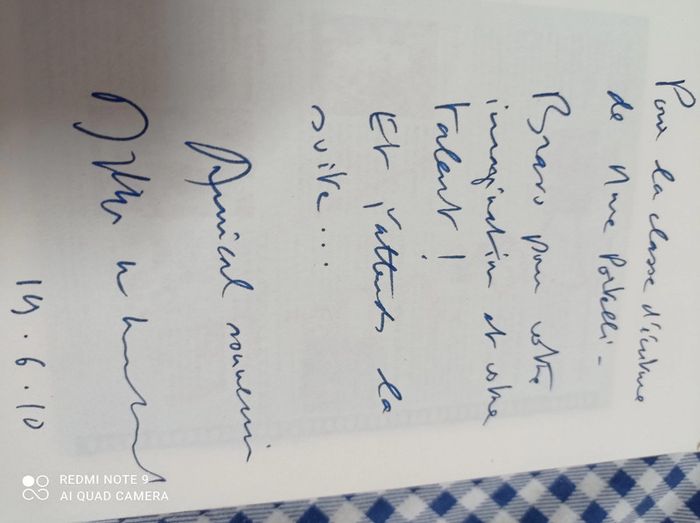 Pour la classe d'écriture
de Mme Portelli -
Bravo pour votre
imagination et votre
talent !
Et j'attends la
suite ...
Amical souvenir
19.6.10
REDMI NOTE 9
AI QUAD CAMERA